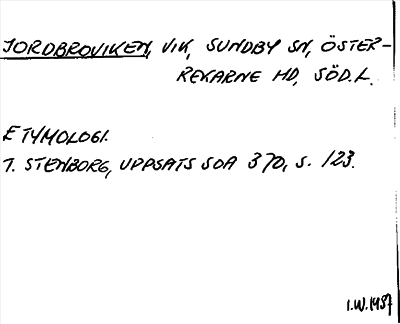 JORDBROVIKEN, VIK, SUNDBY SN, ÖSTER-
REKARNE HD, SÖD.L.
ETYMOLOGI.
T. STENBORG, UPPSATS SOA 370, S. 123.
I.W.1987